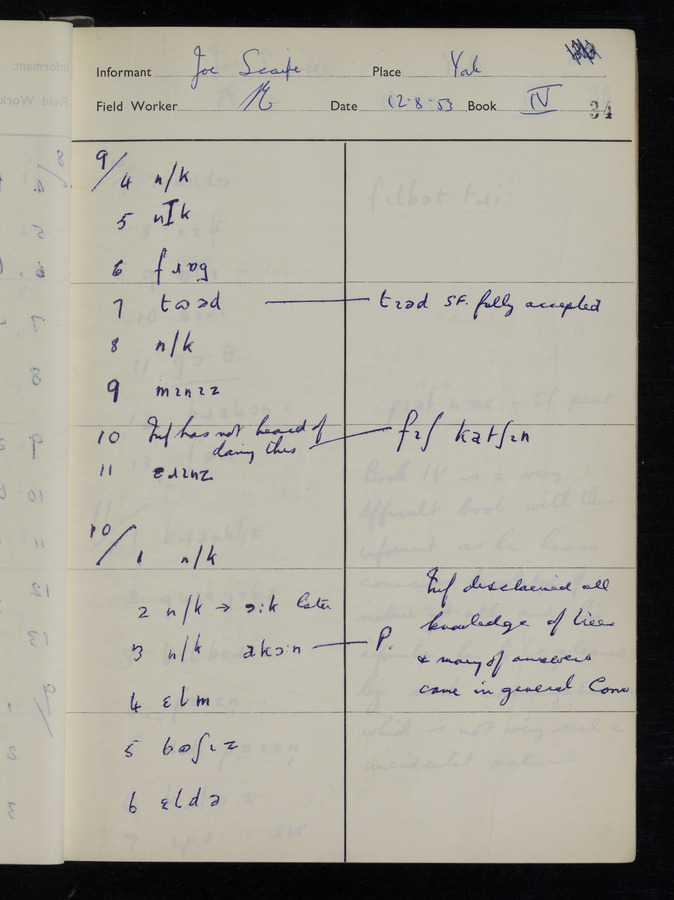 Informant Joe Scaife Place York
Field Worker Date 12-8-53 Book IV 34
9/
4 n/k
5 nɪk
6 fɹɒg
7 tɷəd tɷəd SF. fully accepted
8 n/k
9 mɪnɪz
10 Inf has not heard of
doing this fɪʃ katʃɪn
11
10/
1 n/k
2 n/k → ɔ:k later
3 n/k əkɔ:n P.
Inf disclaimed all
knowledge of trees
& many of answers
came in general Conv.
4 ɛlm
5 bɷʃɪz
6 ɛldə